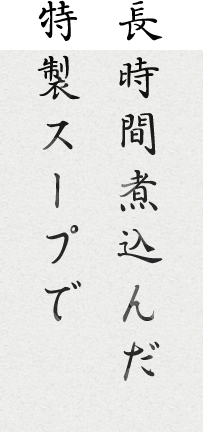 長時間煮込んだ
特製スープで